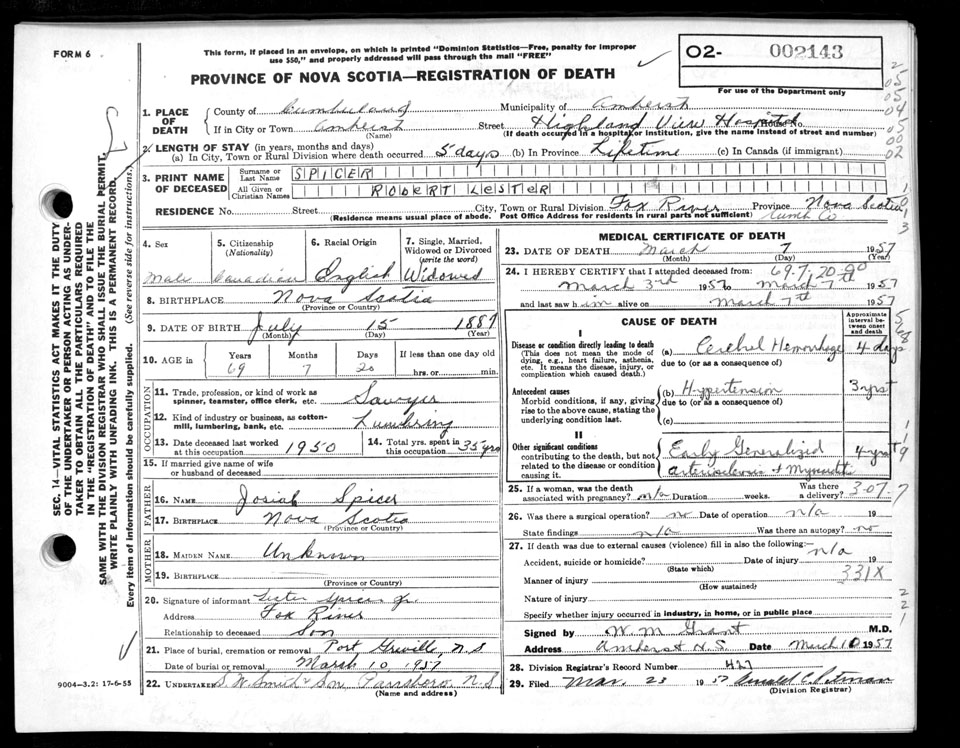 FORM 6
This form, if placed in an envelope, on which is printed "Dominion Statistics—Free, penalty for improper
use $50," and properly addressed will pass through the mail "FREE"
PROVINCE OF NOVA SCOTIA—REGISTRATION OF DEATH
02- 002143
For use of the Department only
1. PLACE OF DEATH
County of Cumberland Municipality of Amherst
If in City or Town Amherst Street Highland View Hospital House No.
(Name) (If death occurred in a hospital or institution, give the name instead of street and number)
2. LENGTH OF STAY (in years, months and days)
(a) In City, Town or Rural Division where death occurred 5 days (b) In Province Lifetime (c) In Canada (if immigrant)
3. PRINT NAME OF DECEASED
Surname or Last Name SPICER
All Given or Christian Names ROBERT LESTER
RESIDENCE No. Street City, Town or Rural Division Fox River Province Nova Scotia
(Residence means usual place of abode. Post Office Address for residents in rural parts not sufficient) Cumb Co
4. Sex Male
5. Citizenship (Nationality) Canadian
6. Racial Origin English
7. Single, Married, Widowed or Divorced (write the word) Widowed
8. BIRTHPLACE Nova Scotia
(Province or Country)
9. DATE OF BIRTH July 15 1887
(Month) (Day) (Year)
10. AGE in Years 69 Months 7 Days 20 If less than one day old hrs. or min.
OCCUPATION
11. Trade, profession, or kind of work as spinner, teamster, office clerk, etc. Sawyer
12. Kind of industry or business, as cotton-mill, lumbering, bank, etc. Lumbring
13. Date deceased last worked at this occupation 1950
14. Total yrs. spent in this occupation 35 yrs
15. If married give name of wife or husband of deceased
FATHER
16. NAME Josiah Spicer
17. BIRTHPLACE Nova Scotia
(Province or Country)
MOTHER
18. MAIDEN NAME Unknown
19. BIRTHPLACE
(Province or Country)
20. Signature of informant Lester Spicer Jr
Address Fox River
Relationship to deceased Son
21. Place of burial, cremation or removal Port Greville, N.S
Date of burial or removal March 10, 1957
22. UNDERTAKER S. W. Smith & Son Parrsboro N.S
(Name and address)
9004-3.2: 17-6-55
MEDICAL CERTIFICATE OF DEATH
23. DATE OF DEATH March 7 1957
(Month) (Day) (Year)
69.7.20
24. I HEREBY CERTIFY that I attended deceased from
March 3rd 1957 to March 7th 1957
and last saw him alive on March 7th 1957
CAUSE OF DEATH
Approximate interval between onset and death
I
Disease or condition directly leading to death
(This does not mean the mode of dying, e.g., heart failure, asthenia, etc. It means the disease, injury, or complication which caused death.)
(a) Cerebral Hemorrhage 4 days
due to (or as a consequence of)
Antecedent causes
Morbid conditions, if any, giving rise to the above cause, stating the underlying condition last.
(b) Hypertension 3 yrs
due to (or as a consequence of)
(c)
II
Other significant conditions
contributing to the death, but not related to the disease or condition causing it.
Early Generalized 4 yrs
arteriosclerosis &
25. If a woman, was the death associated with pregnancy? n/a Duration weeks. Was there a delivery?
3-07.7
26. Was there a surgical operation? no Date of operation n/a 19
State findings n/a Was there an autopsy? no
27. If death was due to external causes (violence) fill in also the following: n/a
Accident, suicide or homicide? Date of injury 19
(State which)
Manner of injury 331X
(How sustained)
Nature of injury
Specify whether injury occurred in industry, in home, or in public place
Signed by W. M. Grant M.D.
Address Amherst N.S. Date March 10 1957
28. Division Registrar's Record Number 427
29. Filed Mar. 23 1957
(Division Registrar)
SEC. 14—VITAL STATISTICS ACT MAKES IT THE DUTY
OF THE UNDERTAKER OR PERSON ACTING AS UNDER-
TAKER TO OBTAIN ALL THE PARTICULARS REQUIRED
IN THE "REGISTRATION OF DEATH" AND TO FILE THE
SAME WITH THE DIVISION REGISTRAR WHO SHALL ISSUE THE BURIAL PERMIT.
WRITE PLAINLY WITH UNFADING INK. THIS IS A PERMANENT RECORD.
Every item of information should be carefully supplied. (See reverse side for instructions)